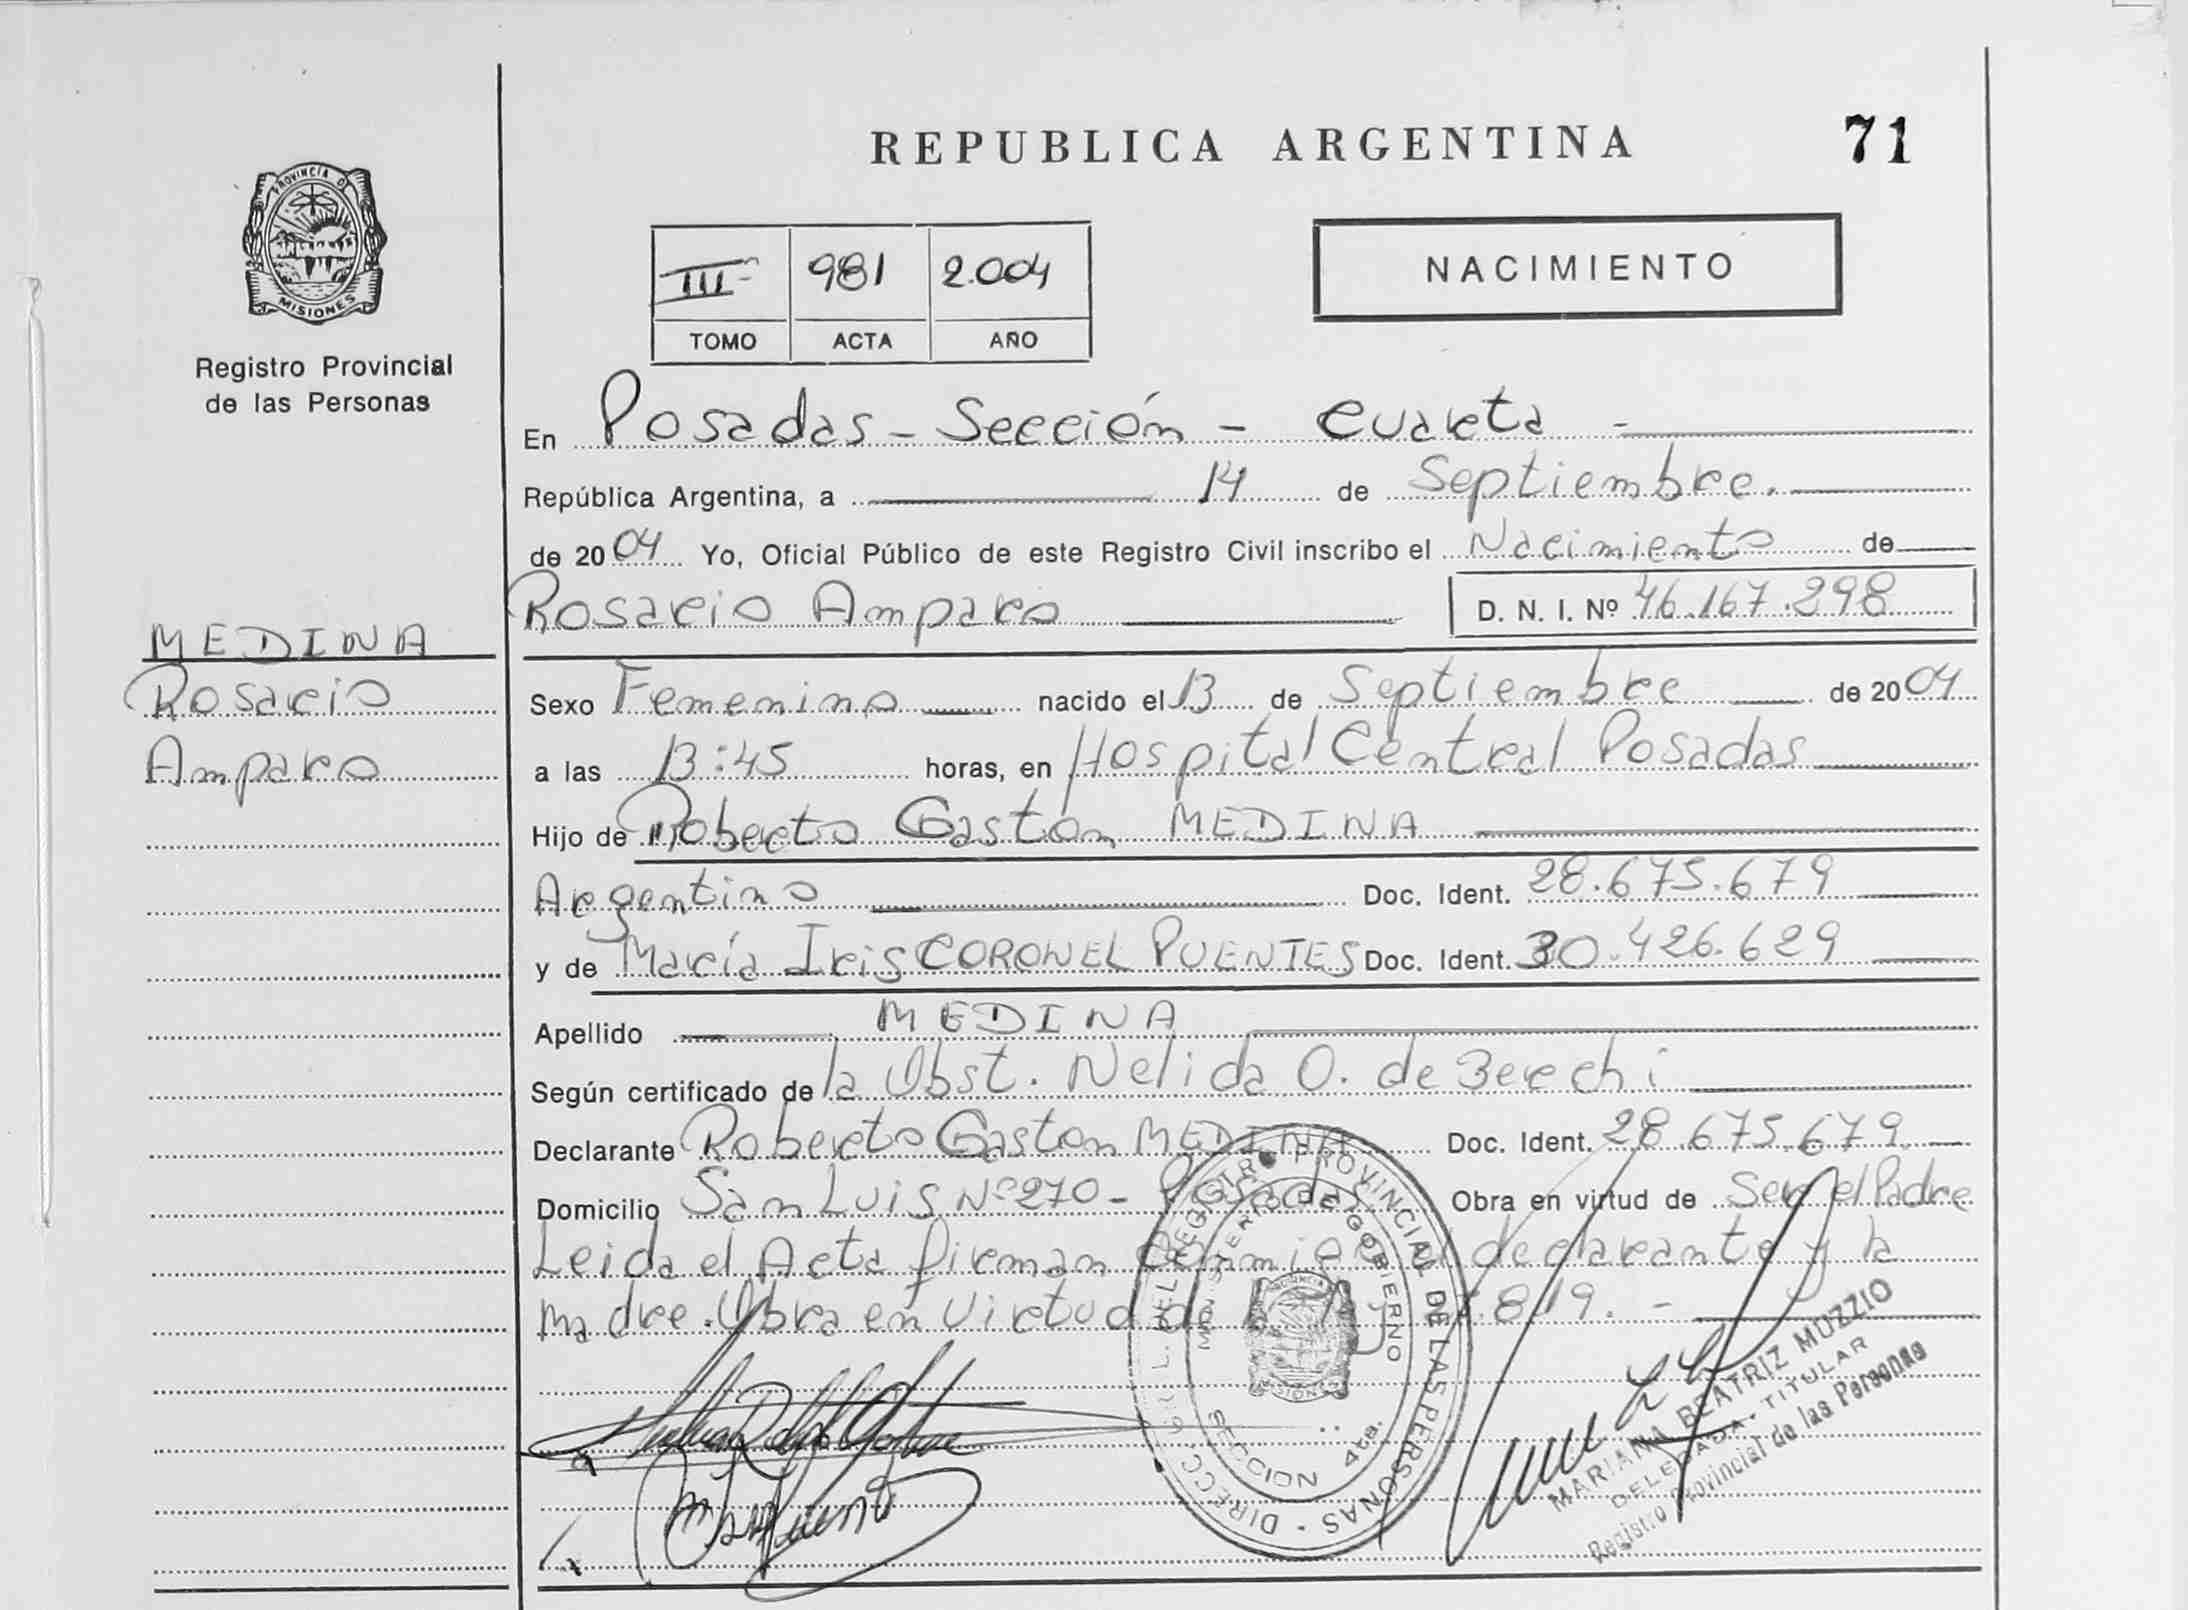 REPUBLICA ARGENTINA
71
PROVINCIA DE
MISIONES
Registro Provincial
de las Personas
III 981 2.004
TOMO ACTA AÑO
NACIMIENTO
En Posadas - Sección - Cuarta -
República Argentina, a 14 de Septiembre.
de 2004 Yo, Oficial Público de este Registro Civil inscribo el Nacimiento de
Rosario Amparo D. N. I. Nº 46.167.298
MEDINA
Rosario
Amparo
Sexo Femenino nacido el 13 de Septiembre de 2004
a las 13:45 horas, en Hospital Central Posadas
Hijo de Roberto Gastón MEDINA
Argentino Doc. Ident. 28.675.679
y de María Iris CORONEL PUENTES Doc. Ident. 30.426.629
Apellido MEDINA
Según certificado de la Obst. Nelida O. de
Declarante Roberto Gaston MEDINA Doc. Ident. 28.675.679
Domicilio San Luis Nº 270 - Posadas Obra en virtud de Ser el Padre
Leida el Acta firman conmigo el declarante y la
madre. Obra en virtud de
DIRECC. GRAL. DEL REGISTRO PROVINCIAL DE LAS PERSONAS
MINISTERIO DE GOBIERNO
SECCION 4ta.
MARIANA BEATRIZ MUZZIO
DELEGADA - TITULAR
Registro Provincial de las Personas